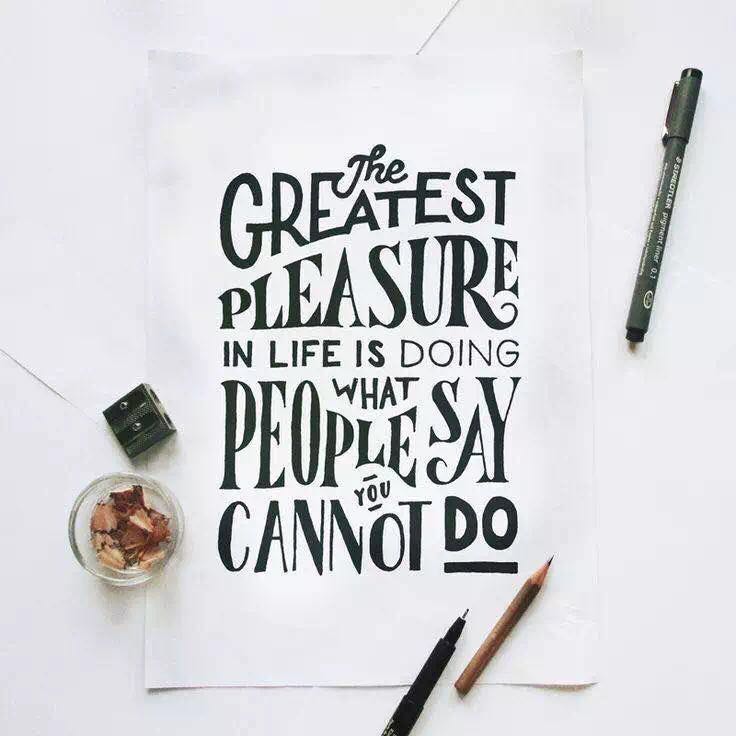 The
GREATEST
PLEASURE
IN LIFE IS DOING
WHAT
PEOPLE SAY
YOU
CANNOT DO
STAEDTLER pigment liner 0.1